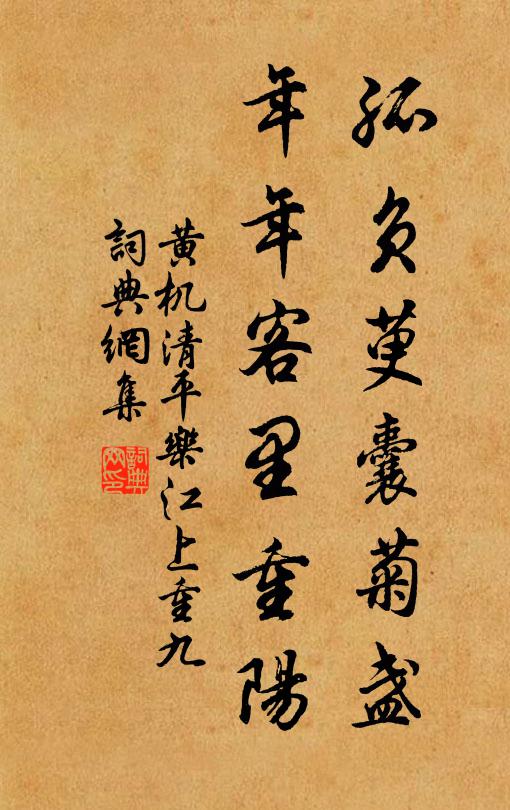 孤负萸囊菊盏
年年客里重陽
黄机清平樂江上重九
詞典網集
詞典網印